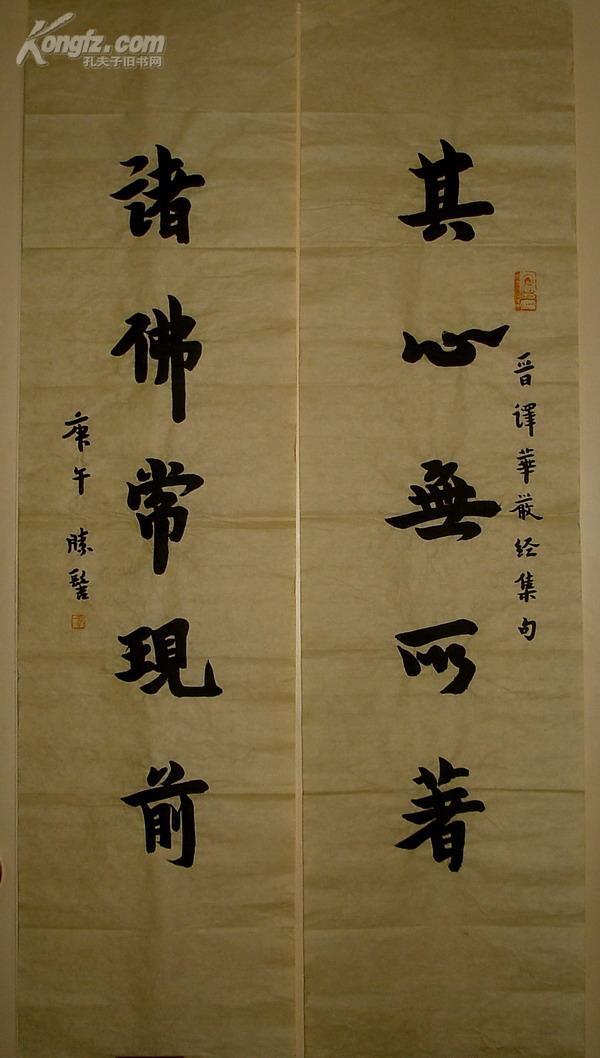 Kongfz.com
孔夫子旧书网
晋譯華嚴经集句
其心無所著
諸佛常現前
庚午 勝髻